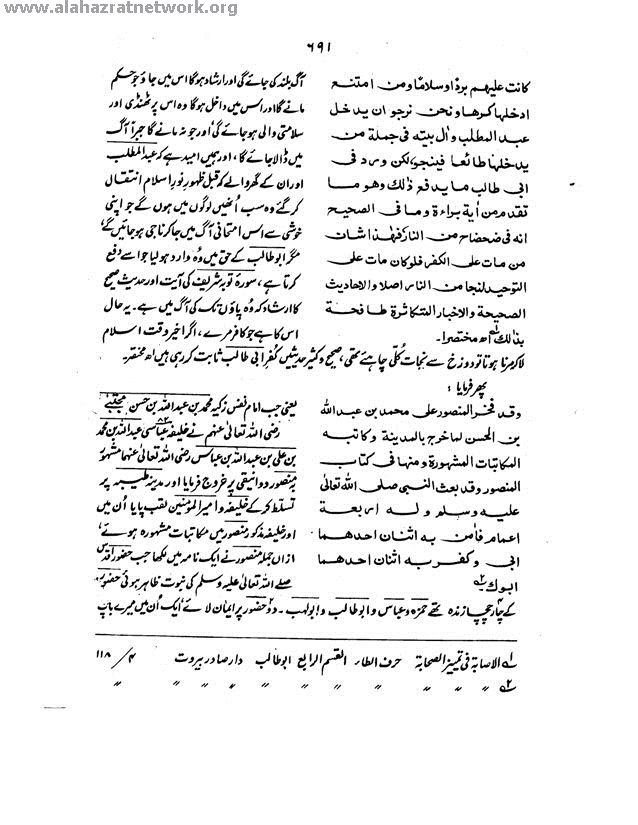 www.alahazratnetwork.org
۶۹۱
کانت علیھم بردًا وسلامًا ومن امتنع
ادخلہا کرھا ونحن نرجوان یدخل
عبد المطلب واٰل بیتہ فی جملۃ من
یدخلہا طائعًا فینجو لکن ورد فی
ابی طالب ما یدفع ذٰلک وھو ما
تقدم من اٰیۃ براءۃ وما فی الصحیح
انہ فی ضحضاح من النار فھٰذا شان
من مات علی الکفر فلو کان مات علی
التوحید لنجا من الناس اصلا والاحادیث
الصحیحۃ والاخبار المتکاثرۃ طافحۃ
بذٰلک اھ مختصرا۔
آگ بلند کی جائے گی اور ارشاد ہوگا اس میں جاؤ جو حکم
مانے گا اور اس میں داخل ہوگا وہ اس پر ٹھنڈی اور
سلامتی والی ہو جائے گی اور جو نہ مانے گا جبراً آگ
میں ڈالا جائے گا، اور ہمیں امید ہے کہ عبدالمطلب
اور ان کے گھر والے کہ قبل ظہور نورِ اسلام انتقال
کر گئے وہ سب انھیں لوگوں میں ہوں گے جو اپنی
خوشی سے اس امتحانی آگ میں جاکر ناجی ہوجائیں گے،
مگر ابوطالب کے حق میں وہ وارد ہولیا جو اسے دفع
کرتا ہے، سورۂ توبہ شریف کی آیت اور حدیث صحیح
کا ارشاد کہ وہ پاؤں تک کی آگ میں ہے۔ یہ حال
اس کا ہے جو کافر مرے، اگر اخیر وقت اسلام
لاکر مرنا ہوتا تو دوزخ سے نجات کُلّی چاہئے تھی، صحیح و کثیر حدیثیں کفرِ ابی طالب ثابت کررہی ہیں اھ مختصر۔
پھر فرمایا :
وقد فخر المنصور علی محمد بن عبد اللہ
بن الحسن لما خرج بالمدینۃ وکاتبہ
المکاتبات المشہورۃ ومنہا فی کتاب
المنصور وقد بعث النبی صلی اللہ تعالٰی
علیہ وسلم ولہ اربعۃ
اعمام فاٰمن بہ اثنان احدھما
ابی وکفر بہ اثنان احدھما
ابوک ۲؎
یعنی جب امام نفس زکیہ محمد بن عبداللہ بن حسن مجتبٰی
رضی اللہ تعالٰی عنہم نے خلیفہ عباسی عبداللہ بن محمد
بن علی بن عبداللہ بن عباس رضی اللہ تعالٰی عنہما مشہور
بہ منصور دوانیقی پر خروج فرمایا اور مدینہ طیبہ پر
تسلط کرکے خلیفہ و امیر المومنین لقب پایا اُن میں
اور خلیفہ مذکور منصور میں مکاتبات مشہورہ ہوئے،
ازاں جملہ منصور نے ایک نامہ میں لکھا جب حضور اقدس
صلے اللہ تعالٰی علیہ وسلم کی نبوت ظاہر ہوئی حضور
کے چار چچا زندہ تھے حمزہ و عباس و ابوطالب و ابولہب۔ دو حضور پر ایمان لائے ایک اُن میں میرے باپ
۱؎ الاصابۃ فی تمییز الصحابۃ حرف الطاء القسم الرابع ابوطالب دار صادر بیروت ۴/ ۱۱۸
۲؎ 〃 〃 〃 〃 〃 〃 〃 〃 〃